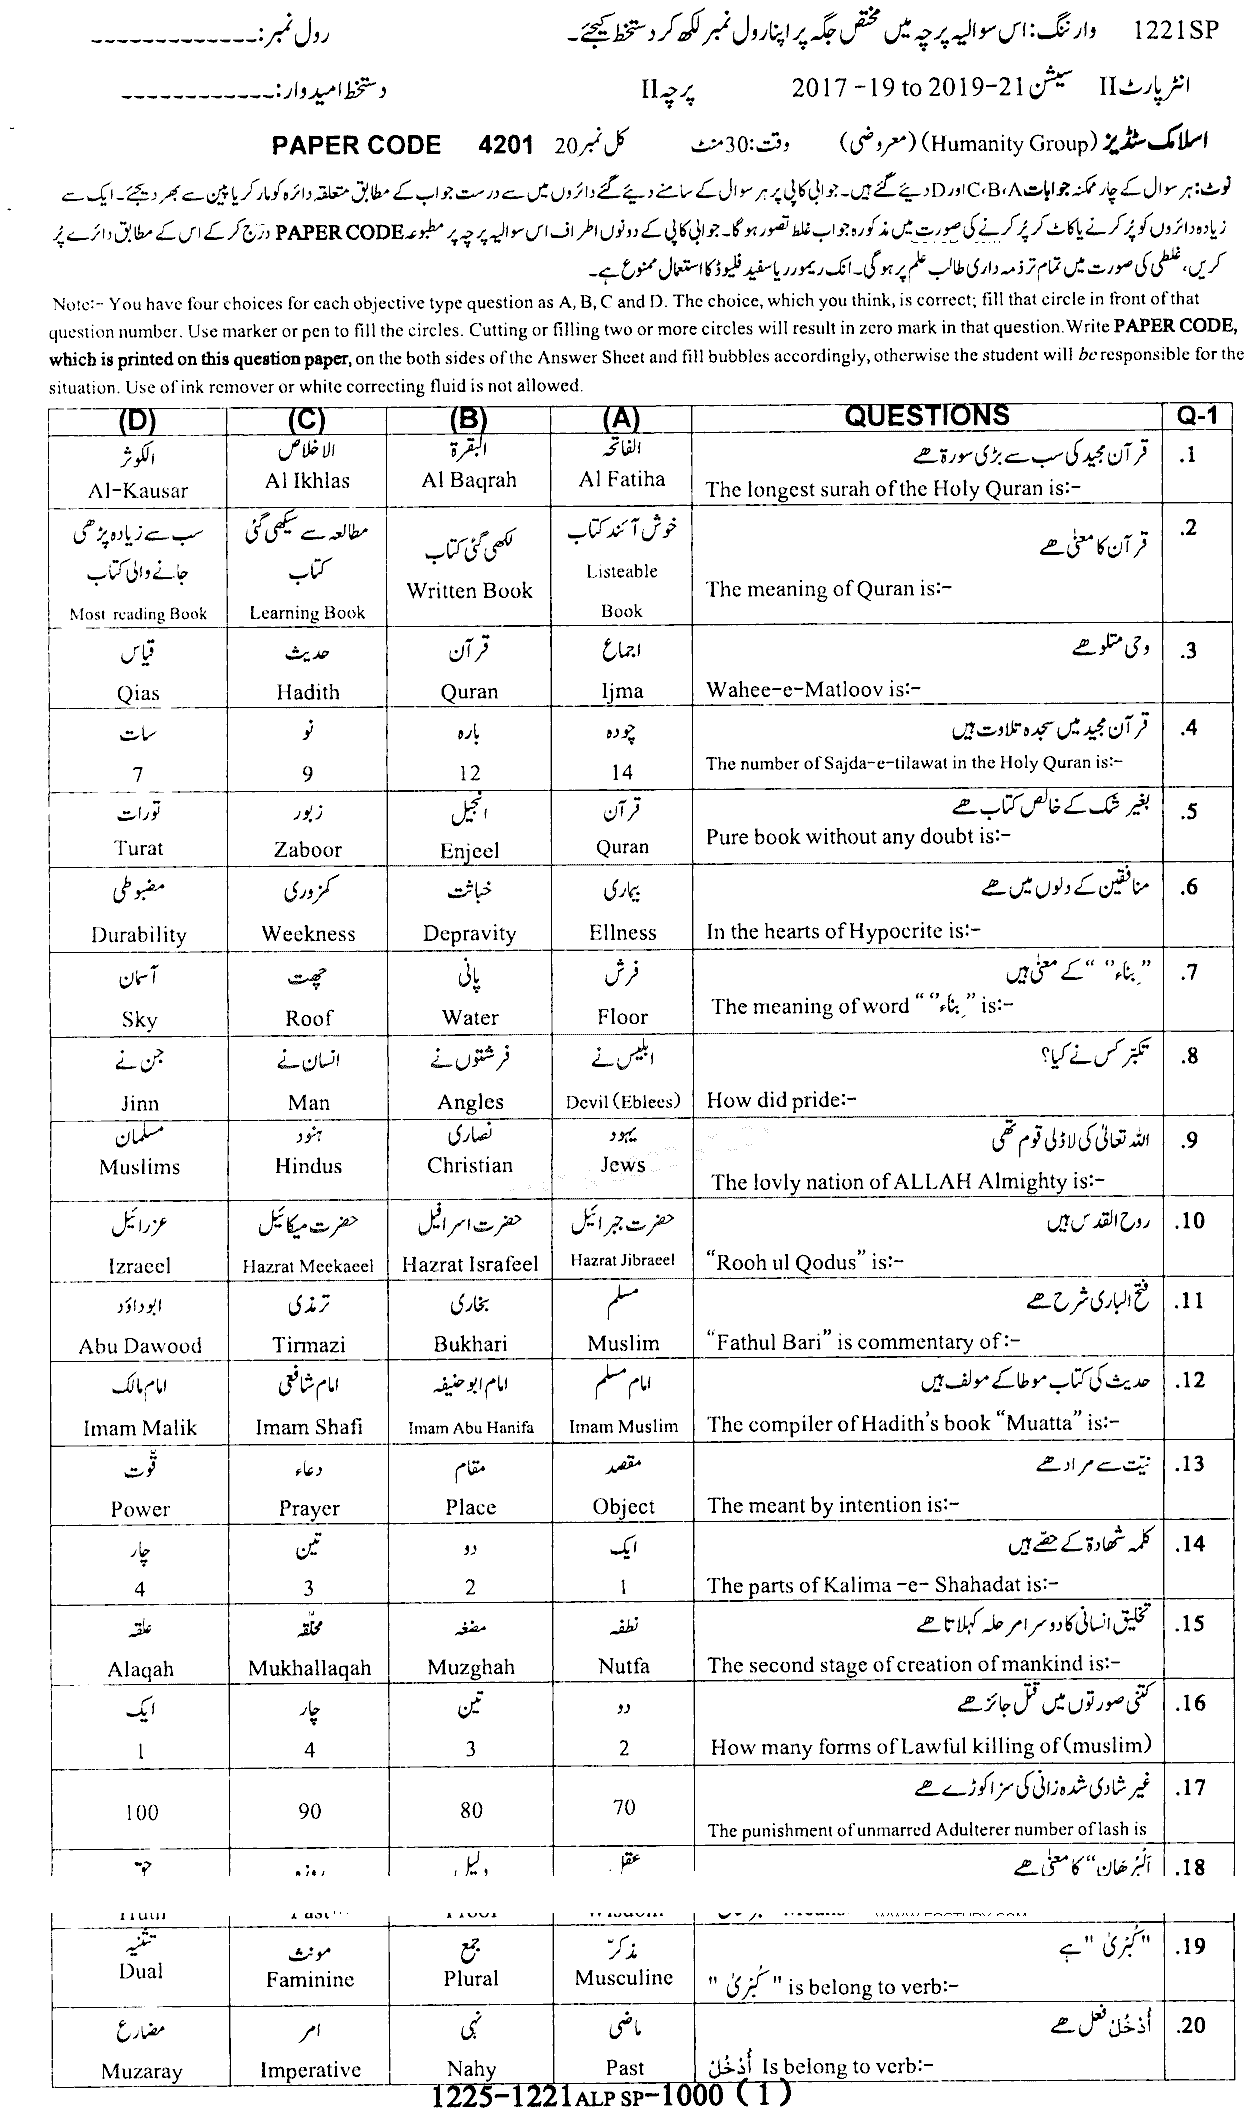 1221SP وارننگ: اس سوالیہ پرچہ میں مختص جگہ پر اپنا رول نمبر لکھ کر دستخط کیجئے۔ رول نمبر: -------------
انٹر پارٹ II سیشن 2017 -19 to 2019-21 پرچہ II دستخط امیدوار: ------------
اسلامک سٹڈیز (Humanity Group) (معروضی) وقت: 30 منٹ کل نمبر 20 PAPER CODE 4201
نوٹ: ہر سوال کے چار ممکنہ جوابات A،B،C اور D دیئے گئے ہیں۔ جوابی کاپی پر ہر سوال کے سامنے دیئے گئے دائروں میں سے درست جواب کے مطابق متعلقہ دائرہ کو مارکر یا پین سے بھر دیجئے۔ ایک سے
زیادہ دائروں کو پُر کرنے یا کاٹ کر پُر کرنے کی صورت میں مذکورہ جواب غلط تصور ہو گا۔ جوابی کاپی کے دونوں اطراف اس سوالیہ پرچہ پر مطبوعہ PAPER CODE درج کر کے اس کے مطابق دائرے پُر
کریں، غلطی کی صورت میں تمام تر ذمہ داری طالب علم پر ہو گی۔ انک ریموور یا سفید فلیوڈ کا استعمال ممنوع ہے۔
Note:- You have four choices for each objective type question as A, B, C and D. The choice, which you think, is correct; fill that circle in front of that
question number. Use marker or pen to fill the circles. Cutting or filling two or more circles will result in zero mark in that question. Write PAPER CODE,
which is printed on this question paper, on the both sides of the Answer Sheet and fill bubbles accordingly, otherwise the student will be responsible for the
situation. Use of ink remover or white correcting fluid is not allowed.
(D) (C) (B) (A) QUESTIONS Q-1
.1 قرآن مجید کی سب سے بڑی سورۃ ھے الفاتحہ البقرۃ الاخلاص الکوثر
Al-Kausar Al Ikhlas Al Baqrah Al Fatiha The longest surah of the Holy Quran is:-
.2 قرآن کا معنیٰ ھے خوش آئند کتاب لکھی گئی کتاب مطالعہ سے سیکھی گئی کتاب سب سے زیادہ پڑھی جانے والی کتاب
Most reading Book Learning Book Written Book Listeable Book The meaning of Quran is:-
.3 وحی متلو ھے اجماع قرآن حدیث قیاس
Qias Hadith Quran Ijma Wahee-e-Matloov is:-
.4 قرآن مجید میں سجدہ تلاوت ہیں چودہ بارہ نو سات
7 9 12 14 The number of Sajda-e-tilawat in the Holy Quran is:-
.5 بغیر شک کے خالص کتاب ھے قرآن انجیل زبور تورات
Turat Zaboor Enjeel Quran Pure book without any doubt is:-
.6 منافقین کے دلوں میں ھے بیماری خباثت کمزوری مضبوطی
Durability Weekness Depravity Ellness In the hearts of Hypocrite is:-
.7 "بِنَاء" کے معنٰی ہیں فرش پانی چھت آسمان
Sky Roof Water Floor The meaning of word "بِنَاء" is:-
.8 تکبّر کس نے کیا؟ ابلیس نے فرشتوں نے انسان نے جن نے
Jinn Man Angles Devil (Eblees) How did pride:-
.9 اللہ تعالیٰ کی لاڈلی قوم تھی یہود نصاریٰ ہنود مسلمان
Muslims Hindus Christian Jews The lovly nation of ALLAH Almighty is:-
.10 روح القدس ہیں حضرت جبرائیل حضرت اسرافیل حضرت میکائیل عزرائیل
Izraeel Hazrat Meekaeel Hazrat Israfeel Hazrat Jibraeel "Rooh ul Qodus" is:-
.11 فتح الباری شرح ھے مسلم بخاری ترمذی ابوداؤد
Abu Dawood Tirmazi Bukhari Muslim "Fathul Bari" is commentary of:-
.12 حدیث کی کتاب موطا کے مولف ہیں امام مسلم امام ابو حنیفہ امام شافعی امام مالک
Imam Malik Imam Shafi Imam Abu Hanifa Imam Muslim The compiler of Hadith's book "Muatta" is:-
.13 نیّت سے مراد ھے مقصد مقام دعاء قوّت
Power Prayer Place Object The meant by intention is:-
.14 کلمہ شھادۃ کے حصّے ہیں ایک دو تین چار
4 3 2 1 The parts of Kalima -e- Shahadat is:-
.15 تخلیق انسانی کا دوسرا مرحلہ کہلاتا ھے نطفہ مضغہ مخلّقہ علقہ
Alaqah Mukhallaqah Muzghah Nutfa The second stage of creation of mankind is:-
.16 کتنی صورتوں میں قتل جائز ھے دو تین چار ایک
1 4 3 2 How many forms of Lawful killing of (muslim)
.17 غیر شادی شدہ زانی کی سزا کوڑے ھے
100 90 80 70 The punishment of unmarred Adulterer number of lash is
.18 اَلْبُرْھَان" کا معنیٰ ھے عقل دلیل روزہ حق
.19 "کُبْرٰی" ہے مذکرّ جمع مونث تثنیہ
Dual Faminine Plural Musculine "کُبْرٰی" is belong to verb:-
.20 اُدْخُلْ فعل ھے ماضی نہی امر مضارع
Muzaray Imperative Nahy Past اُدْخُلْ Is belong to verb:-
1225-1221ALP SP-1000 (1)